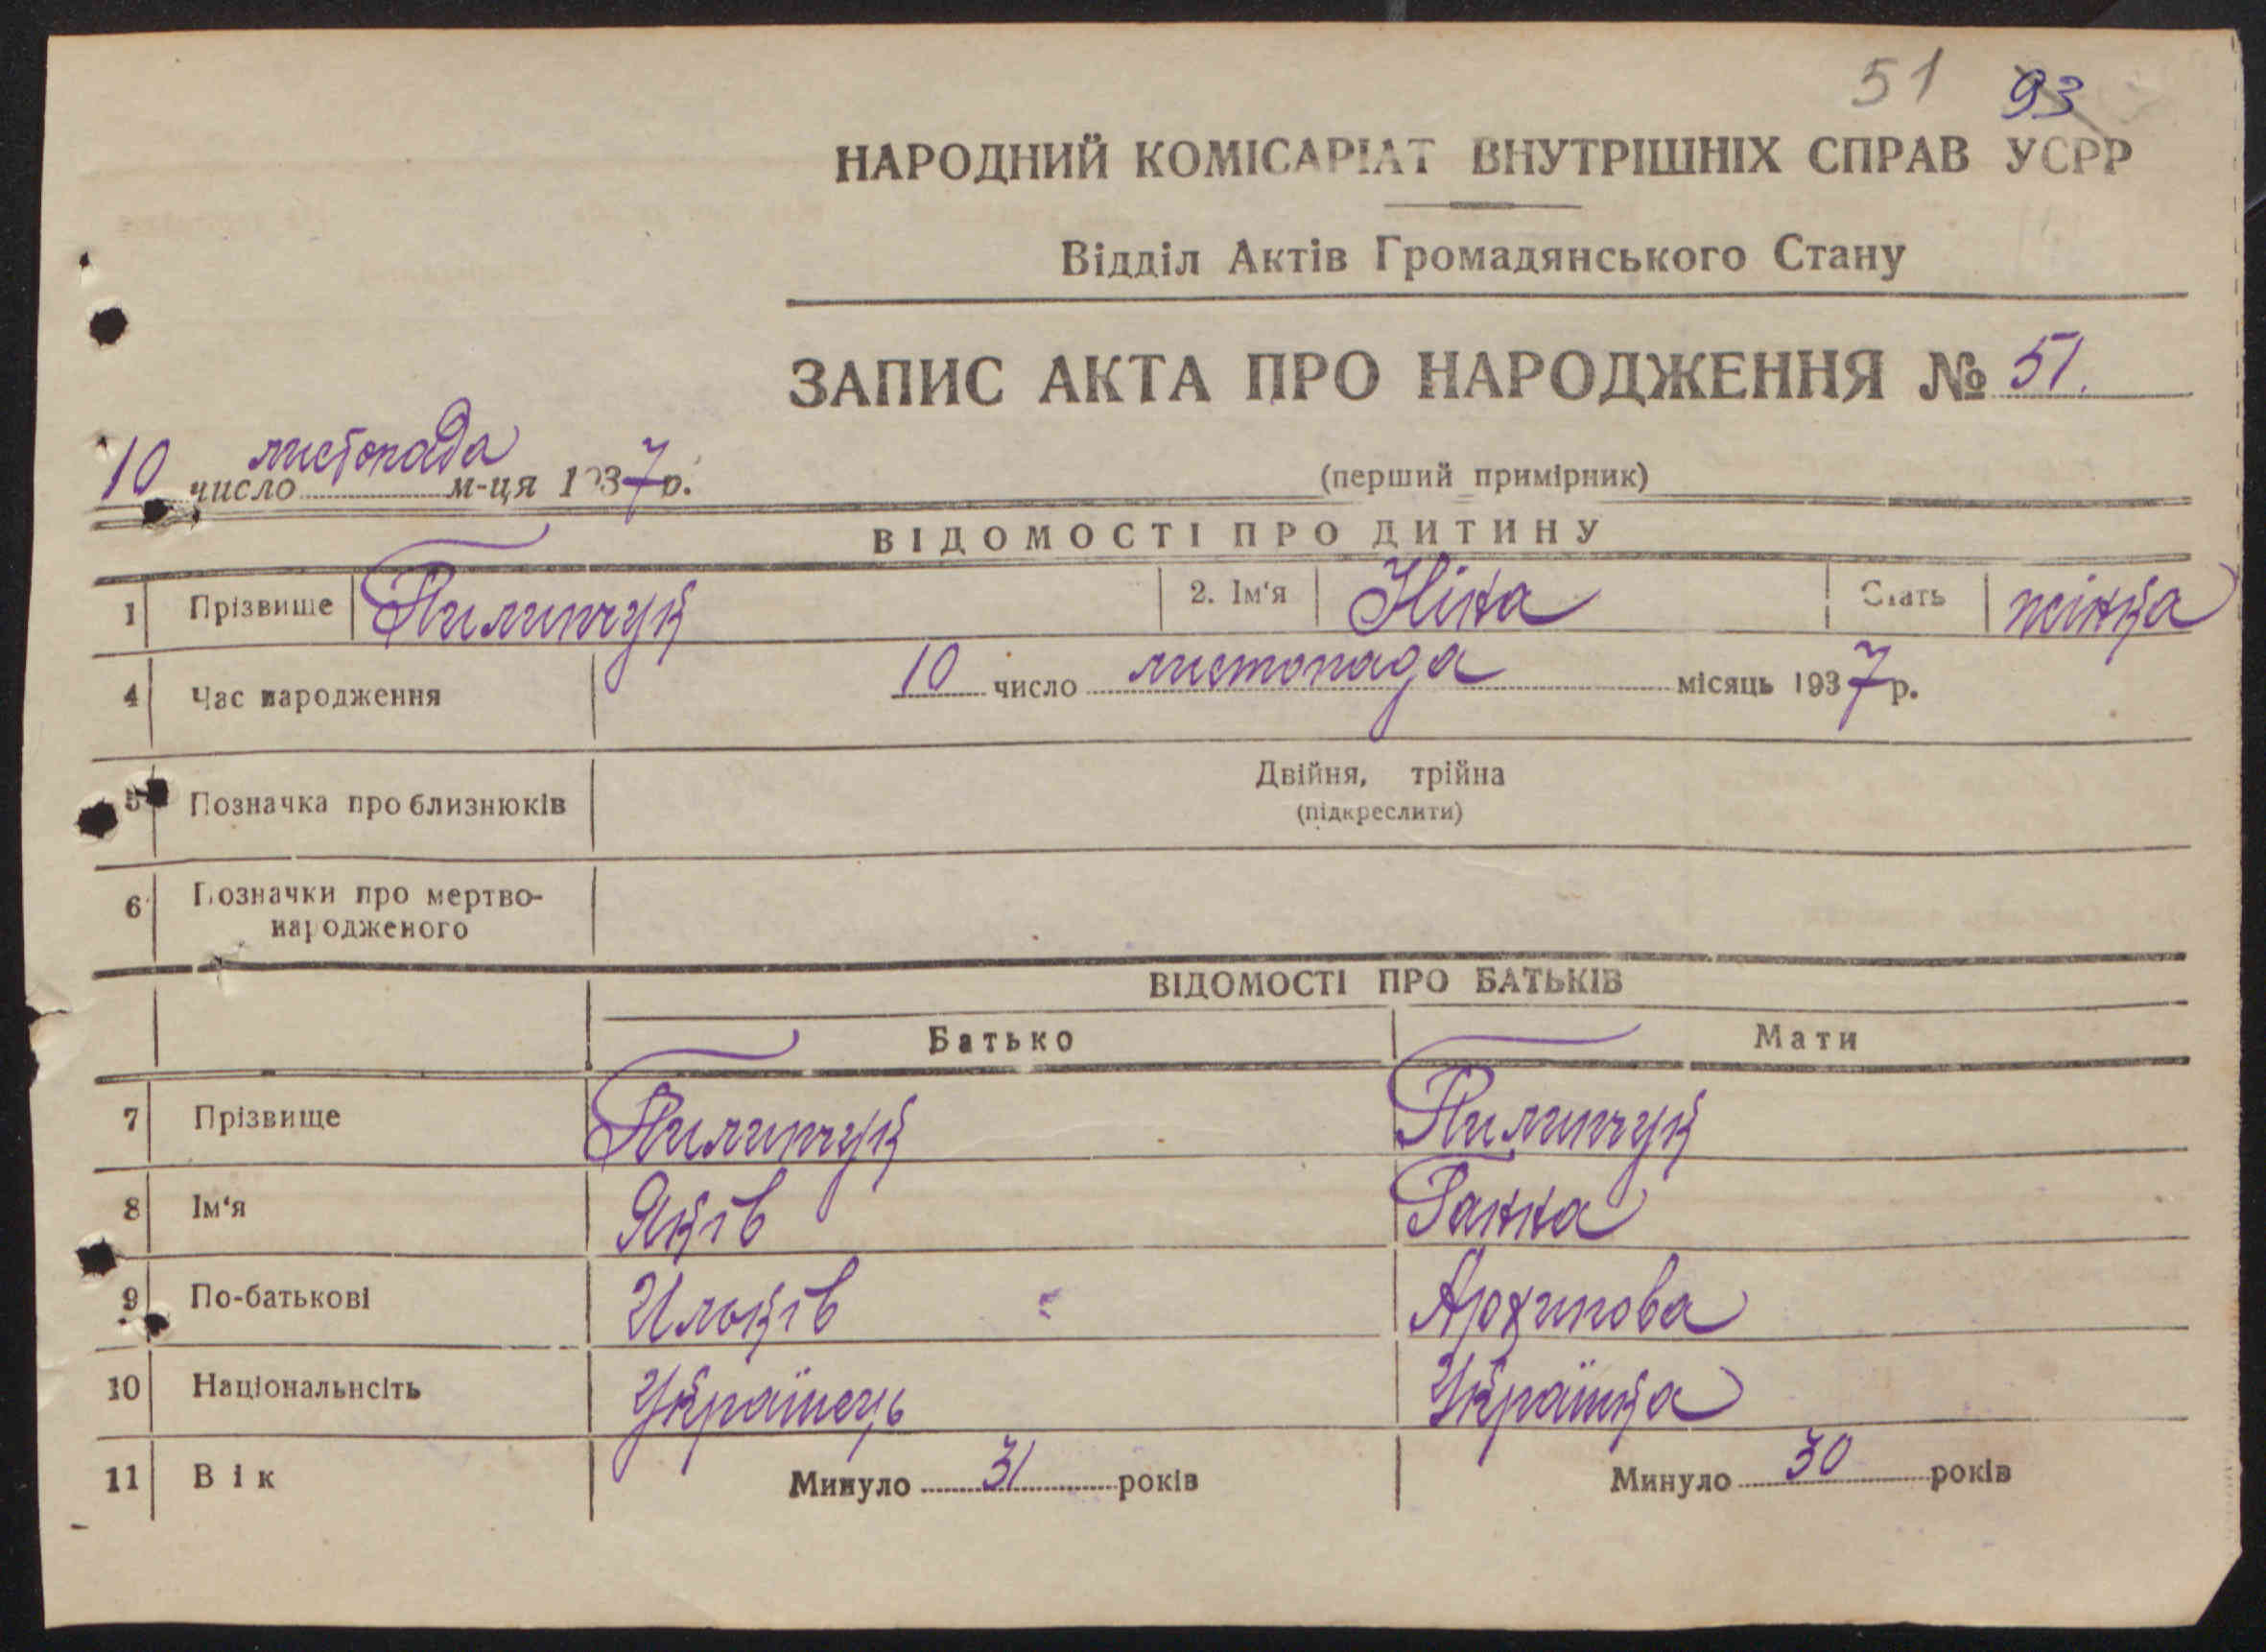 51 93
НАРОДНИЙ КОМІСАРІАТ ВНУТРІШНІХ СПРАВ УСРР
Відділ Актів Громадянського Стану
ЗАПИС АКТА ПРО НАРОДЖЕННЯ № 51.
10 число листопада м-ця 1937 р.
(перший примірник)
ВІДОМОСТІ ПРО ДИТИНУ
1 Прізвище Пилипчук 2. Ім'я Ніна Стать жінка
4 Час народження 10 число листопада місяць 1937 р.
5 Позначка про близнюків Двійня, трійна
(підкреслити)
6 Позначки про мертво-
народженого
ВІДОМОСТІ ПРО БАТЬКІВ
Батько Мати
7 Прізвище Пилипчук Пилипчук
8 Ім'я Яків Ганна
9 По-батькові Ільків Архипова
10 Національнсіть Українець Українка
11 Вік Минуло 31 років Минуло 30 років